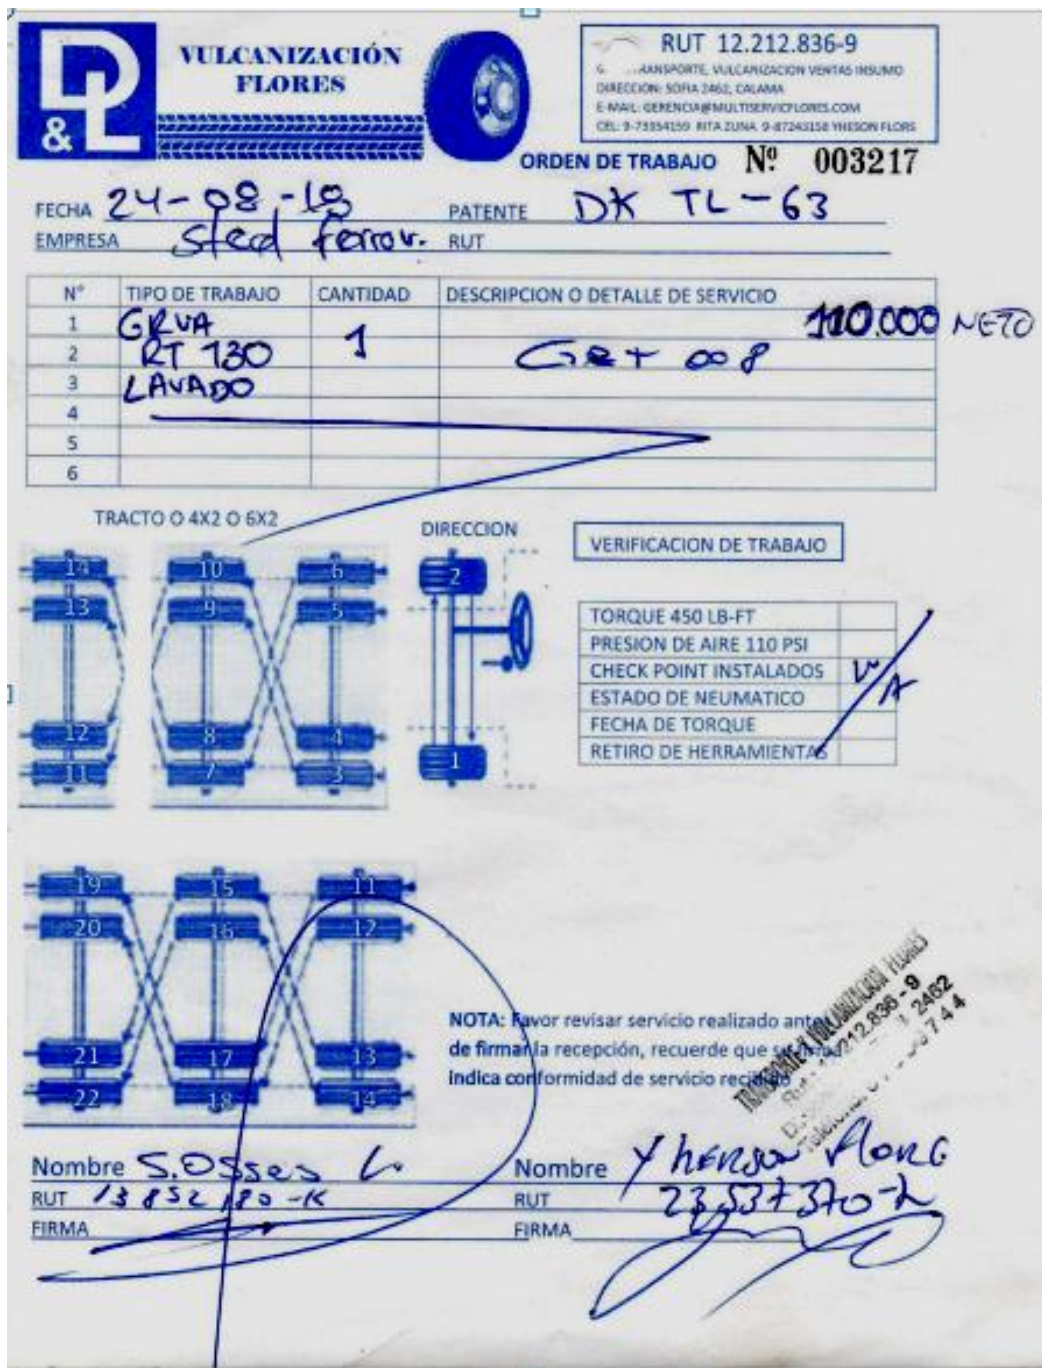 D&L
VULCANIZACIÓN
FLORES
RUT 12.212.836-9
TRANSPORTE, VULCANIZACION VENTAS INSUMO
DIRECCION: SOFIA 2462, CALAMA
E-MAIL: GERENCIA@MULTISERVICFLORES.COM
CEL: 9-73354159 RITA ZUNA 9-87243158 YHESON FLORS
ORDEN DE TRABAJO Nº 003217
FECHA 24-08-18 PATENTE DK TL-63
EMPRESA Sted ferrov. RUT
N° TIPO DE TRABAJO CANTIDAD DESCRIPCION O DETALLE DE SERVICIO
1 GRUA 110.000 NETO
2 RT 130 1 GRT 008
3 LAVADO
4
5
6
TRACTO O 4X2 O 6X2 DIRECCION VERIFICACION DE TRABAJO
14 10 6 2
13 9 5
12 8 4
11 7 3 1
TORQUE 450 LB-FT
PRESION DE AIRE 110 PSI
CHECK POINT INSTALADOS
ESTADO DE NEUMATICO
FECHA DE TORQUE
RETIRO DE HERRAMIENTAS
N/A
19 15 11
20 16 12
21 17 13
22 18 14
NOTA: Favor revisar servicio realizado antes
de firmar la recepción, recuerde que su firma
indica conformidad de servicio recibido
TRANSPORTE Y VULCANIZACION FLORES
12.212.836-9
2462
Nombre S. Osses
RUT 13 852 180-K
FIRMA
Nombre Yherson Flore
RUT 23,537 370-2
FIRMA